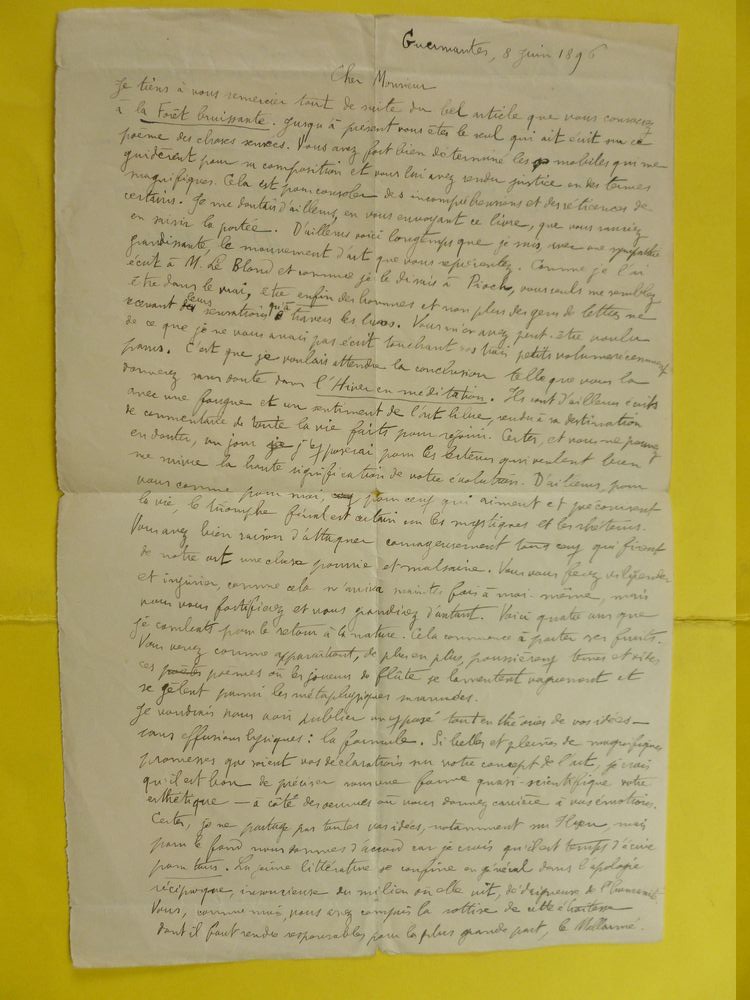 Guermantes, 8 Juin 1896
Cher Monsieur
Je tiens à vous remercier tout de suite du bel article que vous consacrez
à la Forêt bruissante. Jusqu'à présent vous êtes le seul qui ait écrit sur ce
poème des choses sensées. Vous avez fort bien déterminé les mobiles qui me
guidèrent pour sa composition et vous lui avez rendu justice en des termes
magnifiques. Cela est pour consoler des incompréhensions et des réticences de
certains. Je me doutais d'ailleurs, en vous envoyant ce livre, que vous sauriez
en saisir la portée. D'ailleurs voici longtemps que je suis, avec une sympathie
grandissante, le mouvement d'art que vous représentez. Comme je l'ai
écrit à M. Le Blond et comme je le disais à Pioch, vous seuls me semblez
être dans le vrai, être enfin des hommes et non plus des gens de lettres ne
recevant leurs sensations qu'à travers les livres. Vous m'en avez peut-être voulu
de ce que je ne vous avais pas écrit touchant vos trois petits volumes récemment
parus. C'est que je voulais attendre la conclusion telle que vous la
donnerez sans doute dans l'Hiver en méditation. Ils sont d'ailleurs écrits
avec une fougue et un sentiment de l'art libre, rendu à sa destination
de commentaire de toute la vie faits pour réjouir. Certes, et vous ne pouvez
en douter, un jour j'exposerai pour les lecteurs qui veulent bien
me suivre la haute signification de votre évolution. D'ailleurs, pour
vous comme pour moi, pour ceux qui aiment et préconisent
la vie, le triomphe final est certain sur les mystiques et les rhéteurs.
Vous avez bien raison d'attaquer courageusement tous ceux qui firent
de notre art une chose pourrie et malsaine. Vous vous ferez vilipender
et injurier, comme cela m'arriva maintes fois à moi-même, mais
vous vous fortifierez et vous grandirez d'autant. Voici quatre ans que
je combats pour le retour à la nature. Cela commence à porter ses fruits.
Vous verrez comme apparaîtront, de plus en plus, poussiéreux ternes et vides
ces poèmes où les joueurs de flûte se lamentent vaguement et
se gèlent parmi les métaphysiques surannées.
Je voudrais vous voir publier un exposé tout en théories de vos idées —
sans effusions lyriques : la formule. Si belles et pleines de magnifiques
promesses que soient vos déclarations sur votre concept de l'art, je crois
qu'il est bon de préciser sous une forme quasi-scientifique votre
esthétique — à côté des œuvres où vous donnez carrière à vos émotions.
Certes, je ne partage pas toutes vos idées, notamment sur Hugo, mais
pour le fond nous sommes d'accord car je crois qu'il est temps d'écrire
pour tous. La jeune littérature se confine en général dans l'apologie
réciproque, insoucieuse du milieu où elle vit, dédaigneuse de l'humanité.
Vous, comme moi, vous avez compris la sottise de cette
dont il faut rendre responsables pour la plus grande part, le Mallarmé.